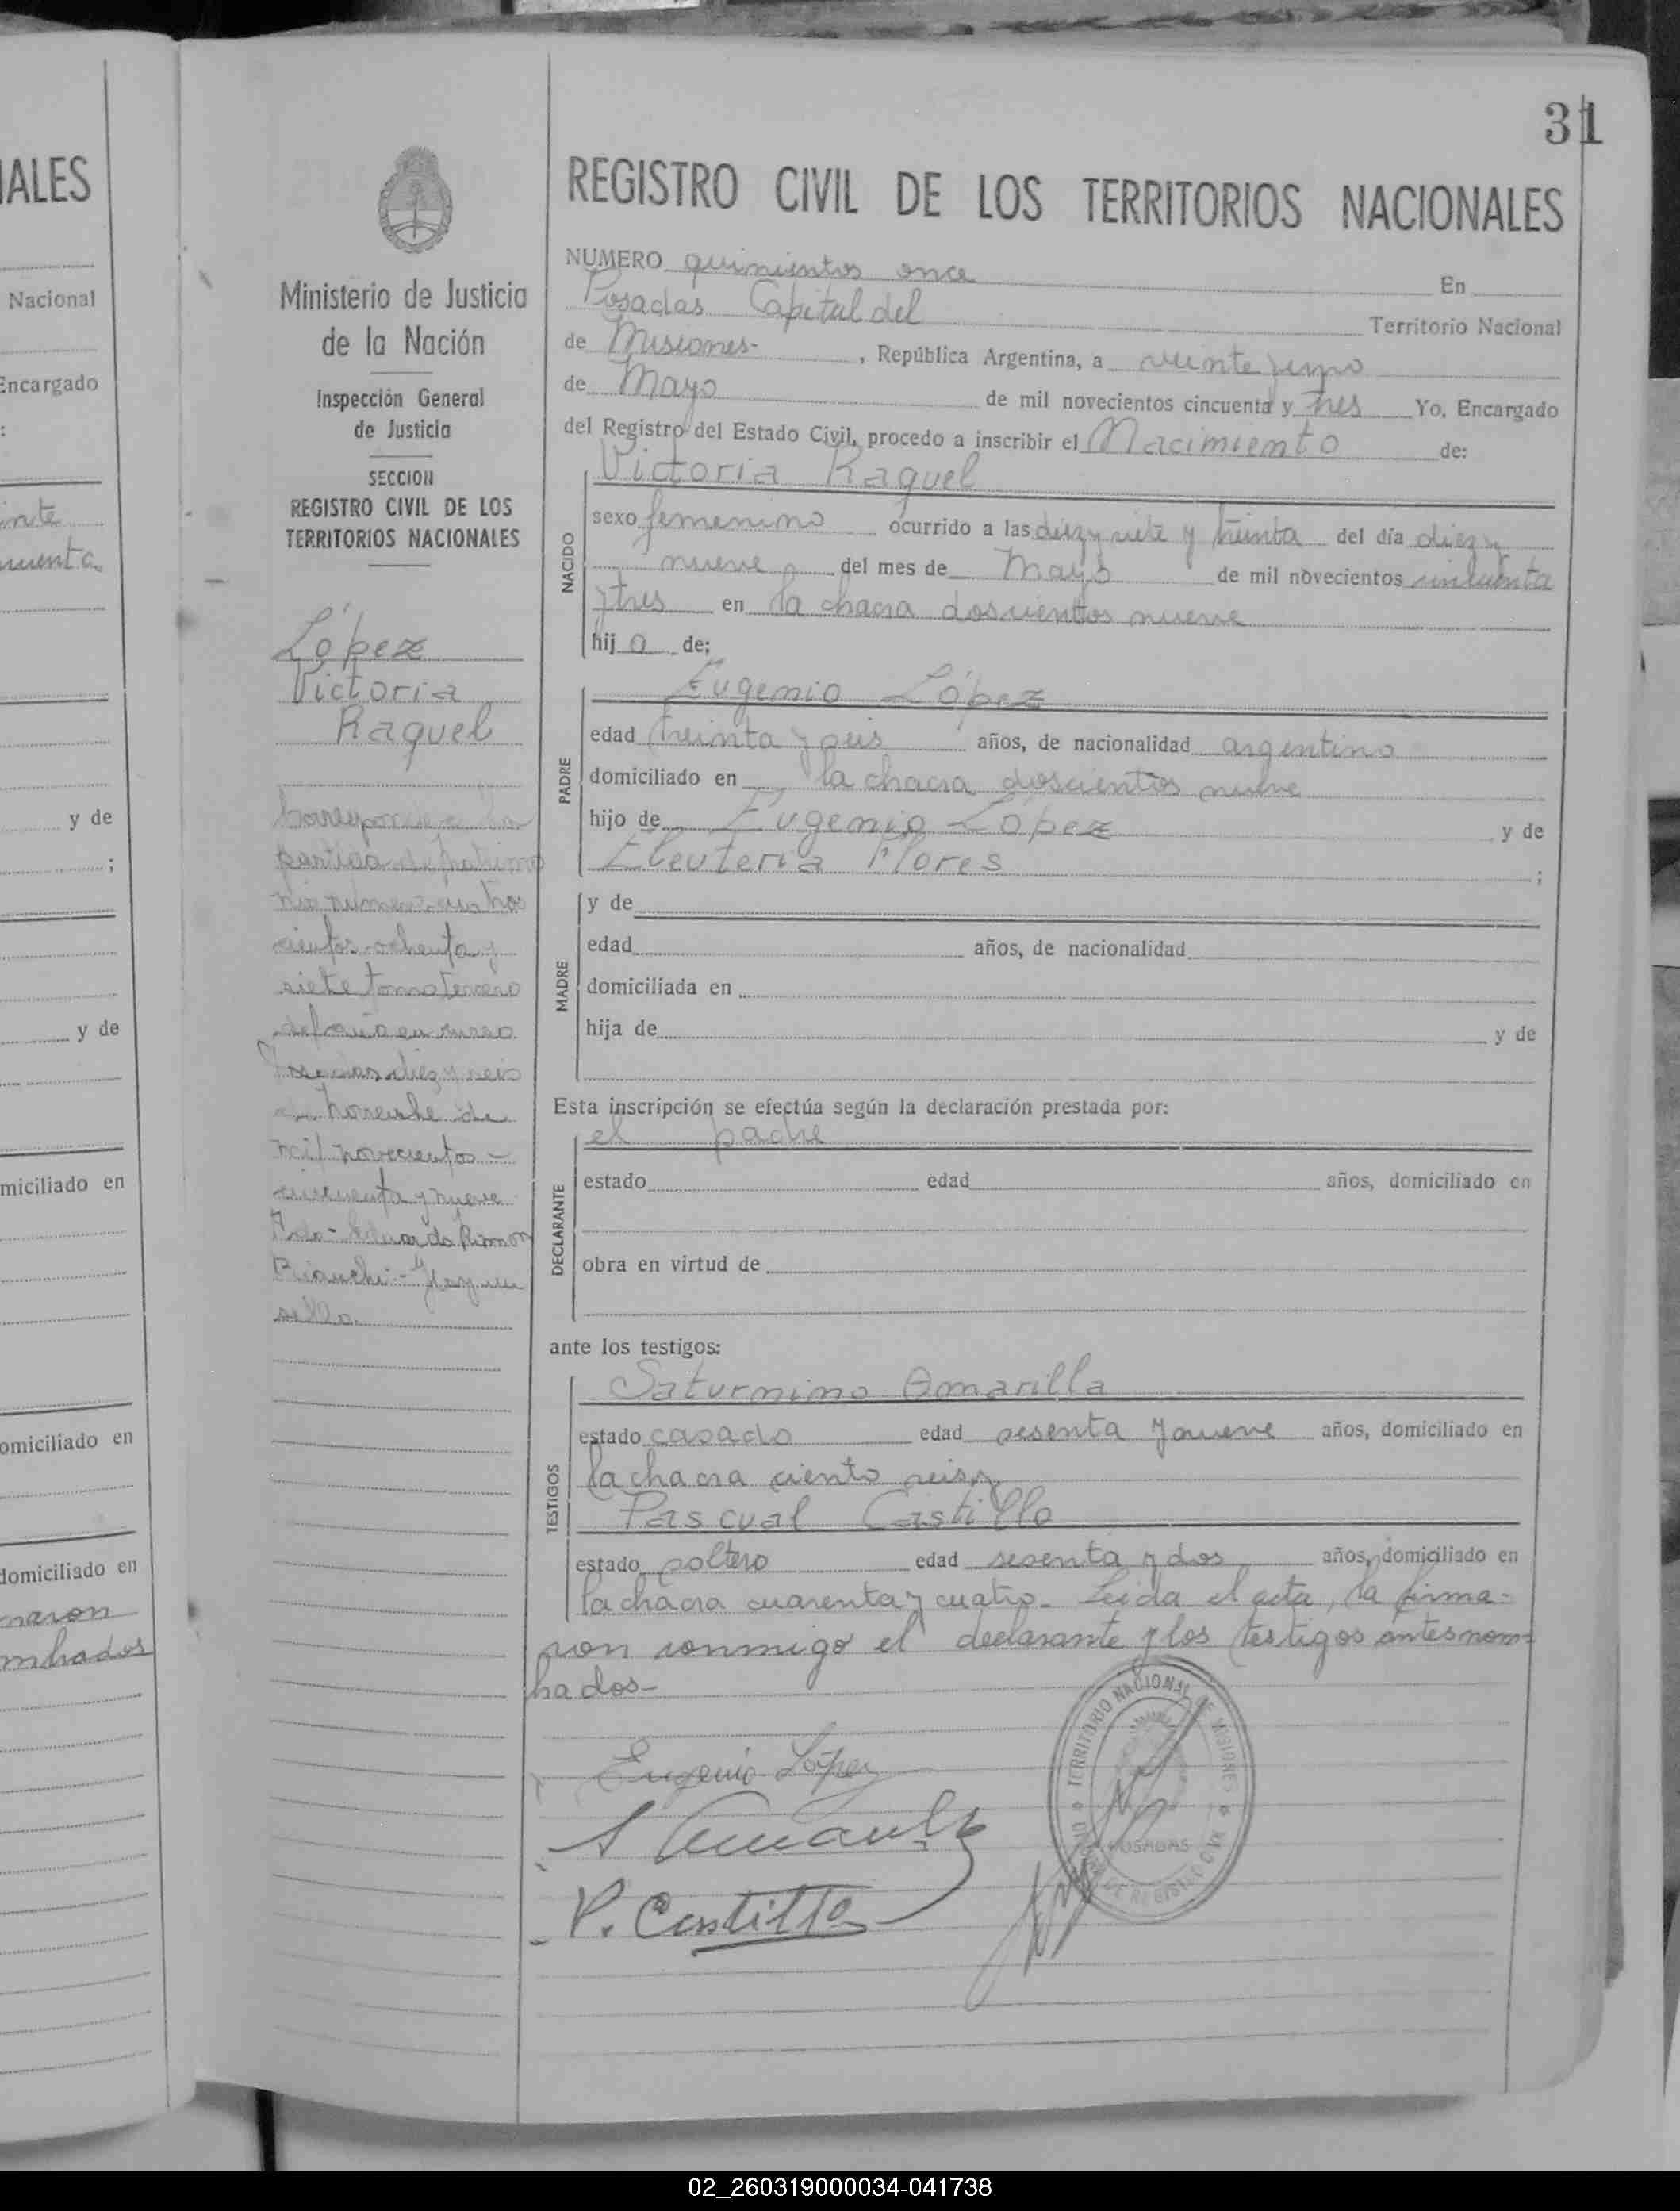 31
REGISTRO CIVIL DE LOS TERRITORIOS NACIONALES
NUMERO quinientos once En
Posadas Capital del Territorio Nacional
de Misiones- , República Argentina, a veinte y uno
de Mayo de mil novecientos cincuenta y tres Yo, Encargado
del Registro del Estado Civil, procedo a inscribir el Nacimiento de:
NACIDO
Victoria Raquel
sexo femenino ocurrido a las diez y siete y treinta del día diez y
nueve del mes de Mayo de mil novecientos cincuenta
y tres en la chacra doscientos nueve
hij a de;
PADRE
Eugenio López
edad treinta y seis años, de nacionalidad argentino
domiciliado en la chacra doscientos nueve
hijo de Eugenio López y de
Eleuteria Flores ;
MADRE
y de
edad años, de nacionalidad
domiciliada en
hija de y de
Esta inscripción se efectúa según la declaración prestada por:
DECLARANTE
el padre
estado edad años, domiciliado en
obra en virtud de
ante los testigos:
TESTIGOS
Saturnino Amarilla
estado casado edad sesenta y nueve años, domiciliado en
la chacra ciento seis y
Pascual Castillo
estado soltero edad sesenta y dos años, domiciliado en
la chacra cuarenta y cuatro- Leida el acta, la firma-
ron conmigo el declarante y los testigos antes nom-
bados-
Eugenio López
P. Castillo
TERRITORIO NACIONAL DE MISIONES
POSADAS
DE REGISTRO CIVIL
Ministerio de Justicia
de la Nación
Inspección General
de Justicia
SECCION
REGISTRO CIVIL DE LOS
TERRITORIOS NACIONALES
López
Victoria
Raquel
Corresponde a la
partida de matrimo
nio número cuatro
cientos ochenta y
siete tomo tercero
del año en curso
Posadas diez y seis
de Noviembre de
mil novecientos -
cincuenta y nueve
Fdo- Eduardo Ramon
Bianchi - Hay un
sello.
IALES
Nacional
Encargado
:
inte
cuenta
y de
;
y de
miciliado en
omiciliado en
domiciliado en
maron
mbados
02_260319000034-041738